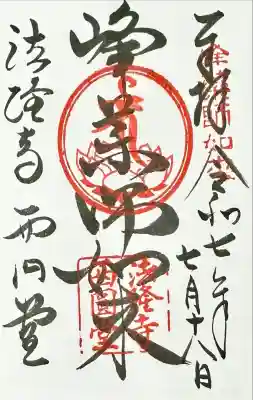 奉拝 令和七年七月十八日
峰薬師如来
法隆寺 西円堂
法隆寺
西圓堂